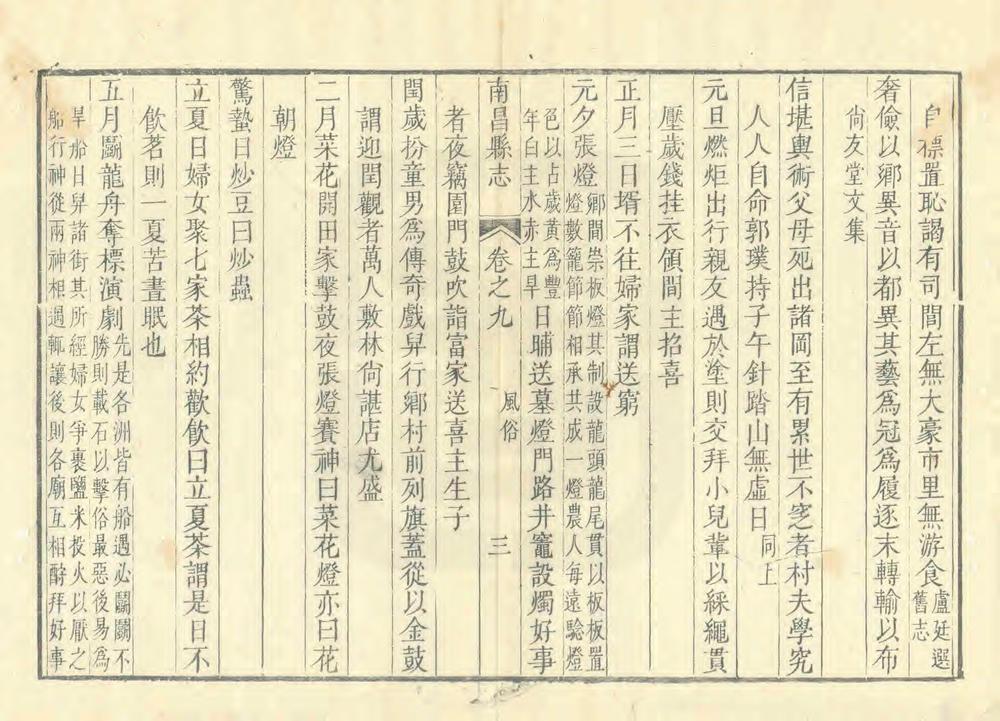 自標置恥謁有司閭左無大豪市里無游食盧廷選
舊志
奢儉以鄉異音以都異其藝爲冠爲履逐末轉輸以布
尙友堂文集
信堪輿術父母死出諸岡至有累世不窆者村夫學究
人人自命郭璞持子午針踏山無虛日同上
元旦燃炬出行親友遇於塗則交拜小兒輩以綵繩貫
壓歲錢挂衣領間主招喜
正月三日壻不往婦家謂送窮
元夕張燈鄉間崇板燈其制設龍頭龍尾貫以板板置
燈數籠節節相承共成一燈農人每遠驗燈
色以占歲黃爲豐
年白主水赤主旱日晡送墓燈門路井竈設燭好事
南昌縣志 卷之九 風俗 三
者夜竊園門鼓吹詣富家送喜主生子
閏歲扮童男爲傳奇戲舁行鄉村前列旗蓋從以金鼓
謂迎閏觀者萬人敷林尙諶店尤盛
二月菜花開田家擊鼓夜張燈賽神曰菜花燈亦曰花
朝燈
驚蟄日炒豆曰炒蟲
立夏日婦女聚七家茶相約歡飮曰立夏茶謂是日不
飮茗則一夏苦晝眠也
五月鬭龍舟奪標演劇先是各洲皆有船遇必鬭鬭不
勝則載石以擊俗最惡後易爲
旱船日舁諸街其所經婦女爭裹鹽米投火以厭之
船行神從兩神相遇輒讓後則各廟互相酧拜好事